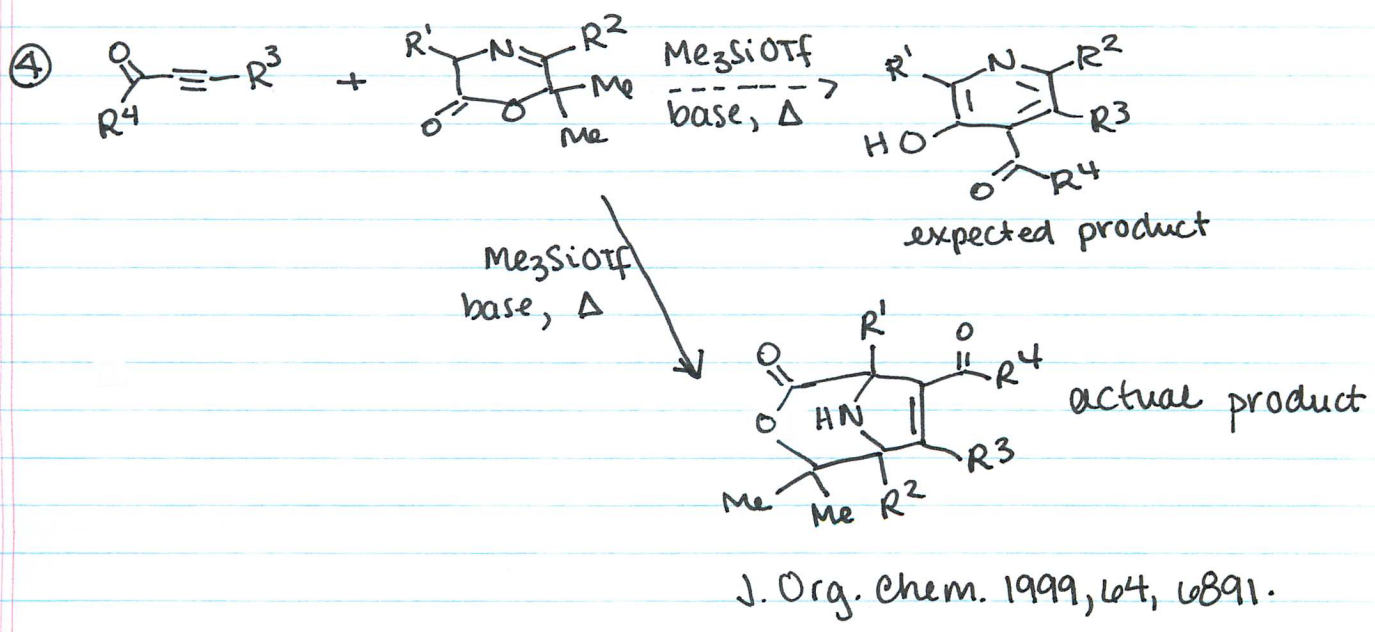 ④
O
R⁴
R³
+
R¹
N
R²
O
O
Me
Me
Me₃SiOTf
base, Δ
R¹
N
R²
HO
R³
O
R⁴
expected product
Me₃SiOTf
base, Δ
R¹
O
O
R⁴
O
HN
R³
Me
Me
R²
actual product
J. Org. Chem. 1999, 64, 6891.